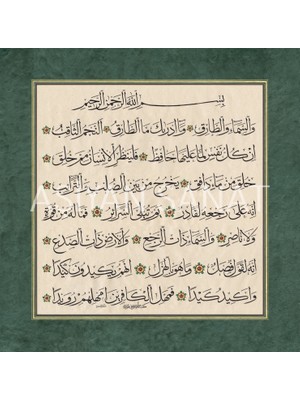 بِسْمِ اللّٰهِ الرَّحْمٰنِ الرَّحِيمِ
وَالسَّمَاءِ وَالطَّارِقِ وَمَا أَدْرٰيكَ مَا الطَّارِقُ النَّجْمُ الثَّاقِبُ
إِنْ كُلُّ نَفْسٍ لَمَّا عَلَيْهَا حَافِظٌ فَلْيَنْظُرِ الْإِنْسَانُ مِمَّ خُلِقَ
خُلِقَ مِنْ مَاءٍ دَافِقٍ يَخْرُجُ مِنْ بَيْنِ الصُّلْبِ وَالتَّرَائِبِ
إِنَّهُ عَلٰى رَجْعِهِ لَقَادِرٌ يَوْمَ تُبْلَى السَّرَائِرُ فَمَا لَهُ مِنْ قُوَّةٍ
وَلَا نَاصِرٍ وَالسَّمَاءِ ذَاتِ الرَّجْعِ وَالْأَرْضِ ذَاتِ الصَّدْعِ
إِنَّهُ لَقَوْلٌ فَصْلٌ وَمَا هُوَ بِالْهَزْلِ إِنَّهُمْ يَكِيدُونَ كَيْدًا
وَأَكِيدُ كَيْدًا فَمَهِّلِ الْكَافِرِينَ أَمْهِلْهُمْ رُوَيْدًا